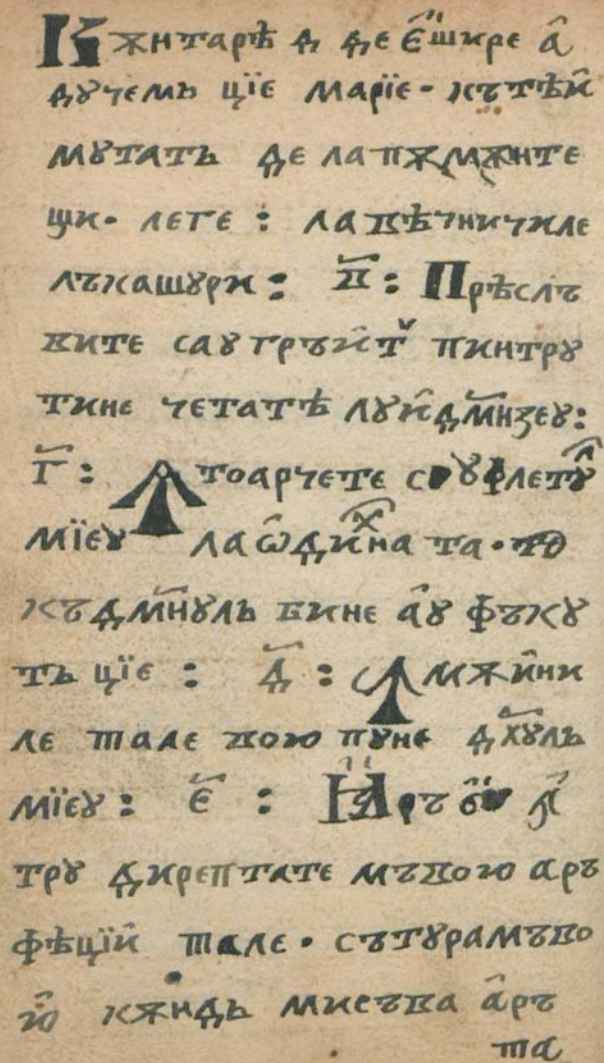 Кѫнтарѣ д де є҆шире а҆
дучемь цїе марїе· кътѣи҆
мутать де ла пѫмѫнте
щи· леџе : ла вѣчничиле
лъкашури : в҃ : Прѣслъ
вите сау гръи҆тꙋ пинтру
тине четатѣ луи҆ дмⷩ҇зеу :
г҃ : Ꙟтоарчете сꙋфлетꙋл
мїеꙋ ла ѡ҆дихна та· то
къ дмⷩ҇ꙋль бине а҆у фъку
ть цїе : д҃ : Ꙟ мѫи҆ни
ле тале вою пуне дх҃уль
мїеꙋ : є҃ : Ꙗръ є҆ꙋ ꙟ҆
тру дирептате мъвою аръ
фѣцїи҆ тале· сътурамъво
ю҆ кѫндь мисъва а҆ръ
та